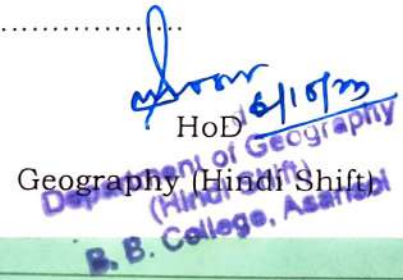 ....................
HoD
Geography (Hindi Shift)
Department of Geography
(Hindi Shift)
B. B. College, Asansol